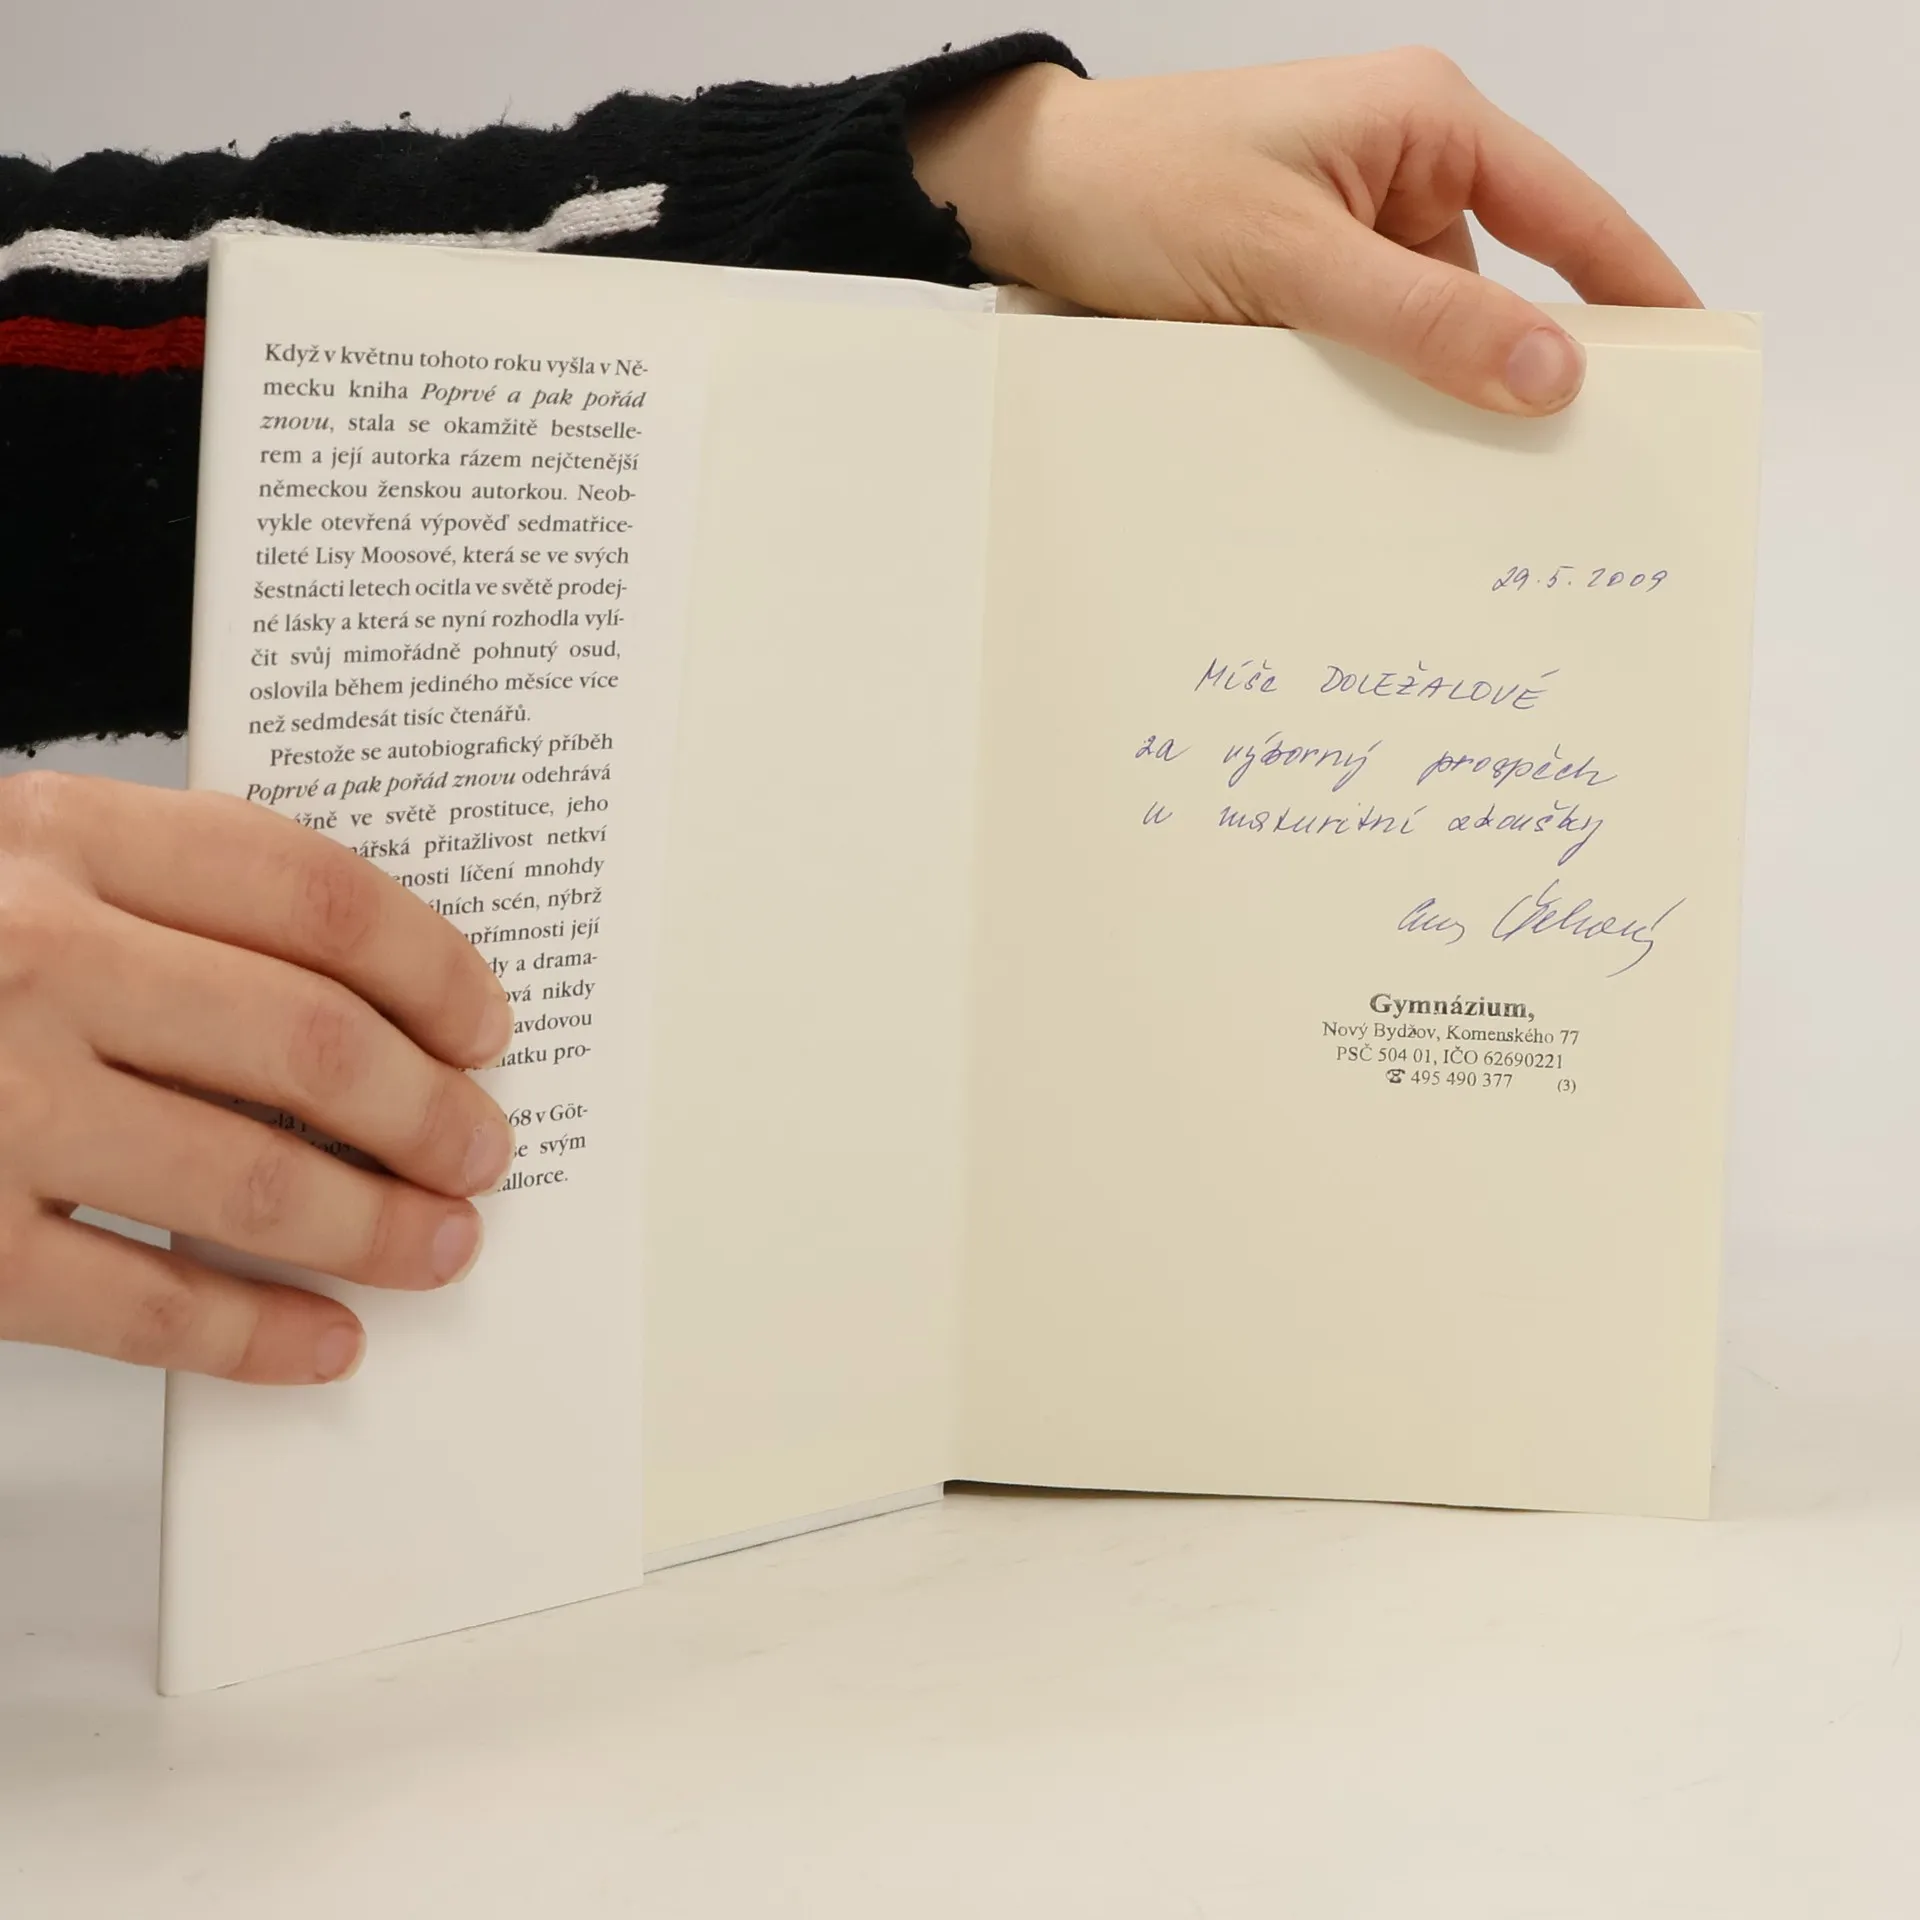 Když v květnu tohoto roku vyšla v Ně-
mecku kniha Poprvé a pak pořád
znovu, stala se okamžitě bestselle-
rem a její autorka rázem nejčtenější
německou ženskou autorkou. Neob-
vykle otevřená výpověď sedmatřice-
tileté Lisy Moosové, která se ve svých
šestnácti letech ocitla ve světě prodej-
né lásky a která se nyní rozhodla vylí-
čit svůj mimořádně pohnutý osud,
oslovila během jediného měsíce více
než sedmdesát tisíc čtenářů.
Přestože se autobiografický příběh
Poprvé a pak pořád znovu odehrává
ve světě prostituce, jeho
přitažlivost netkví
líčení mnohdy
scén, nýbrž
její
a drama-
nikdy
pro-
68 v Göt-
se svým
29.5.2009
Míše DOLEŽALOVÉ
za výborný prospěch
u maturitní zkoušky
Gymnázium,
Nový Bydžov, Komenského 77
PSČ 504 01, IČO 62690221
☎ 495 490 377 (3)